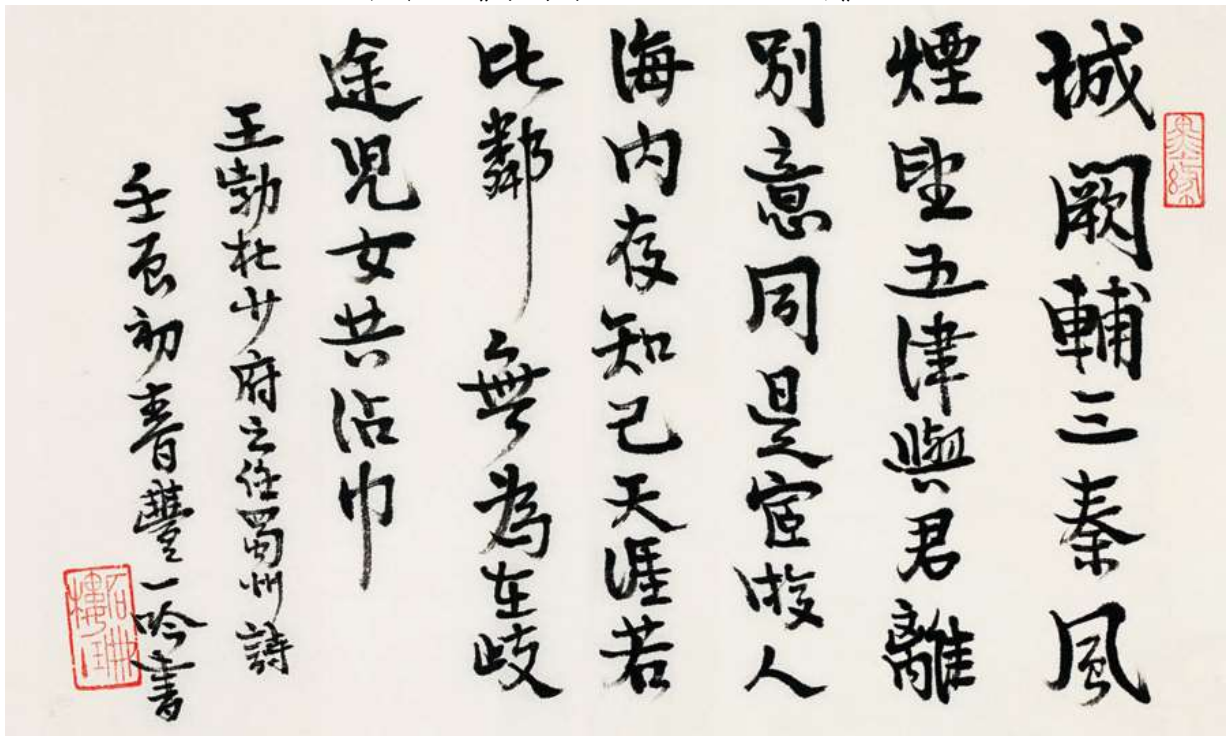 城闕輔三秦風
煙望五津與君離
別意同是宦游人
海内存知己天涯若
比鄰無為在歧
途兒女共沾巾
王勃杜少府之任蜀州詩
壬辰初春豐一吟書